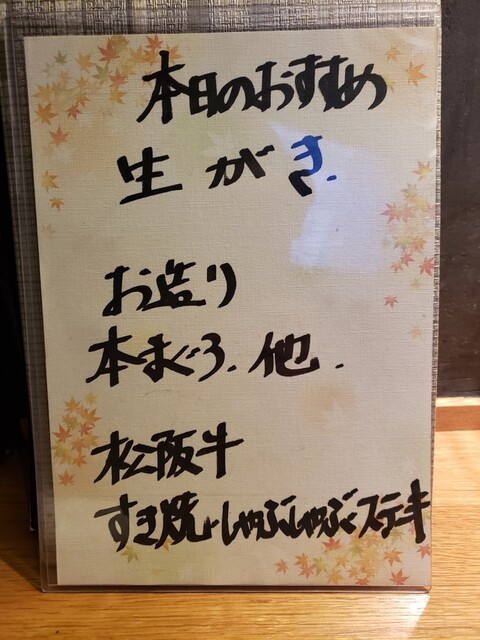 本日のおすすめ
生がき.
お造り
本まぐろ.他.
松阪牛
すき焼・しゃぶしゃぶ・ステーキ